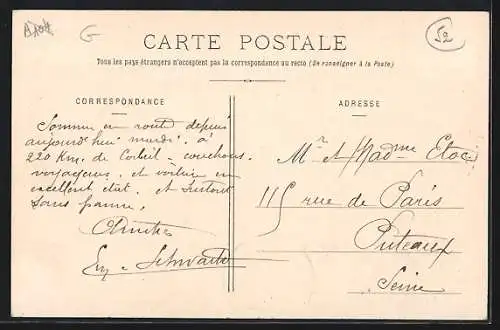 G
52
CARTE POSTALE
Tous les pays étrangers n'acceptent pas la correspondance au recto (Se renseigner à la Poste)
CORRESPONDANCE
Sommes en route depuis
aujourd'hui mardi. à
220 Km. de Corbeil - couchons.
voyageurs. et voiture en
excellent état. et surtout
sans panne.
Amitiés
Schwartz
ADRESSE
Mr et Madme Etoc
115 rue de Paris
Puteaux
Seine